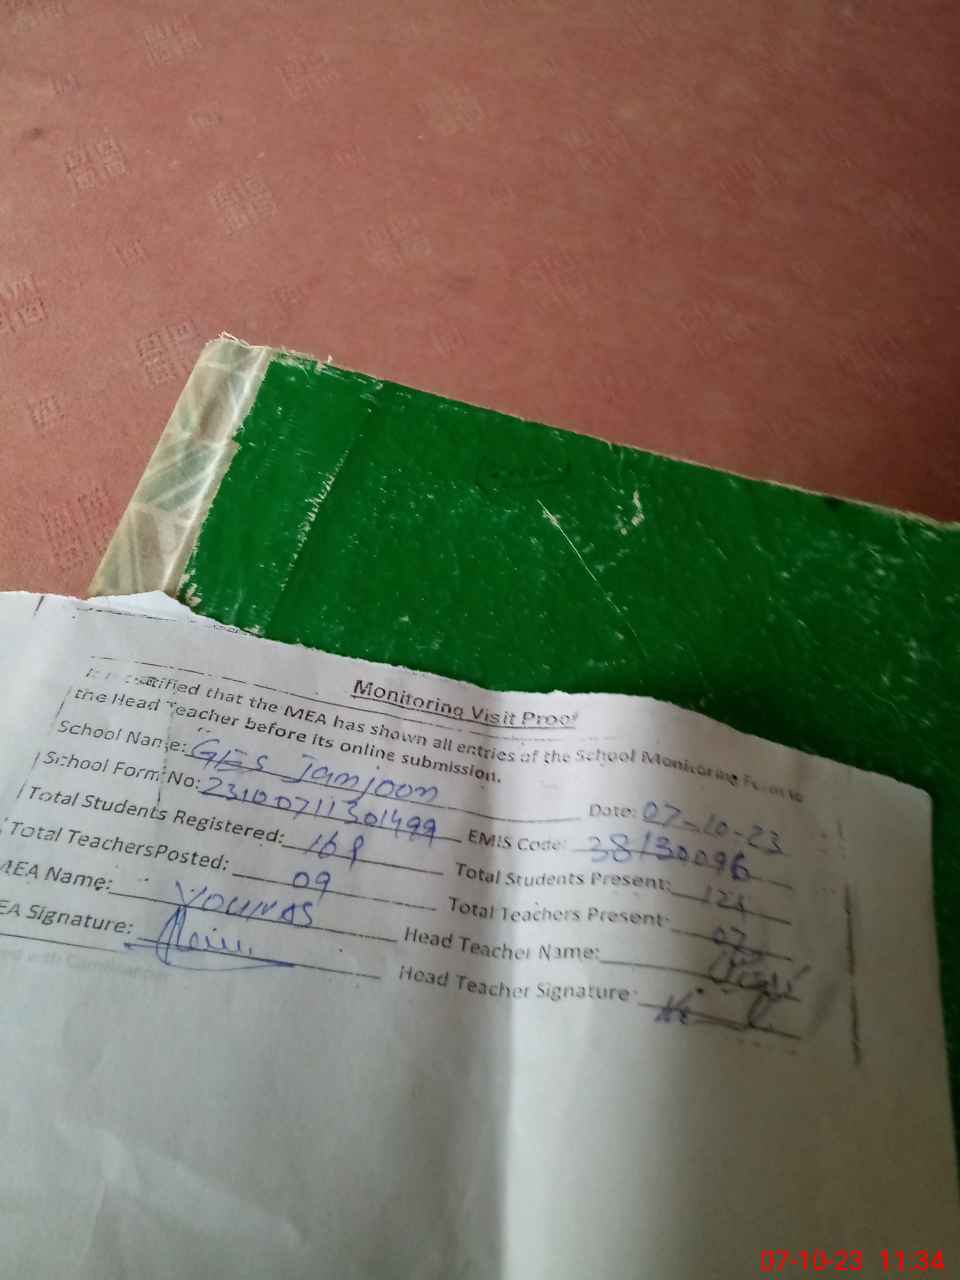 Monitoring Visit Proof
certified that the MEA has shown all entries of the School Monitoring Form to
the Head Teacher before its online submission.
School Name: GES Jamjoom Date: 07-10-23
School Form No: 23100711301499 EMIS Code: 38130096
Total Students Registered: Total Students Present:
Total Teachers Posted: 09 Total Teachers Present: 07
MEA Name: YOUNAS Head Teacher Name:
EA Signature: Head Teacher Signature:
07-10-23 11:34